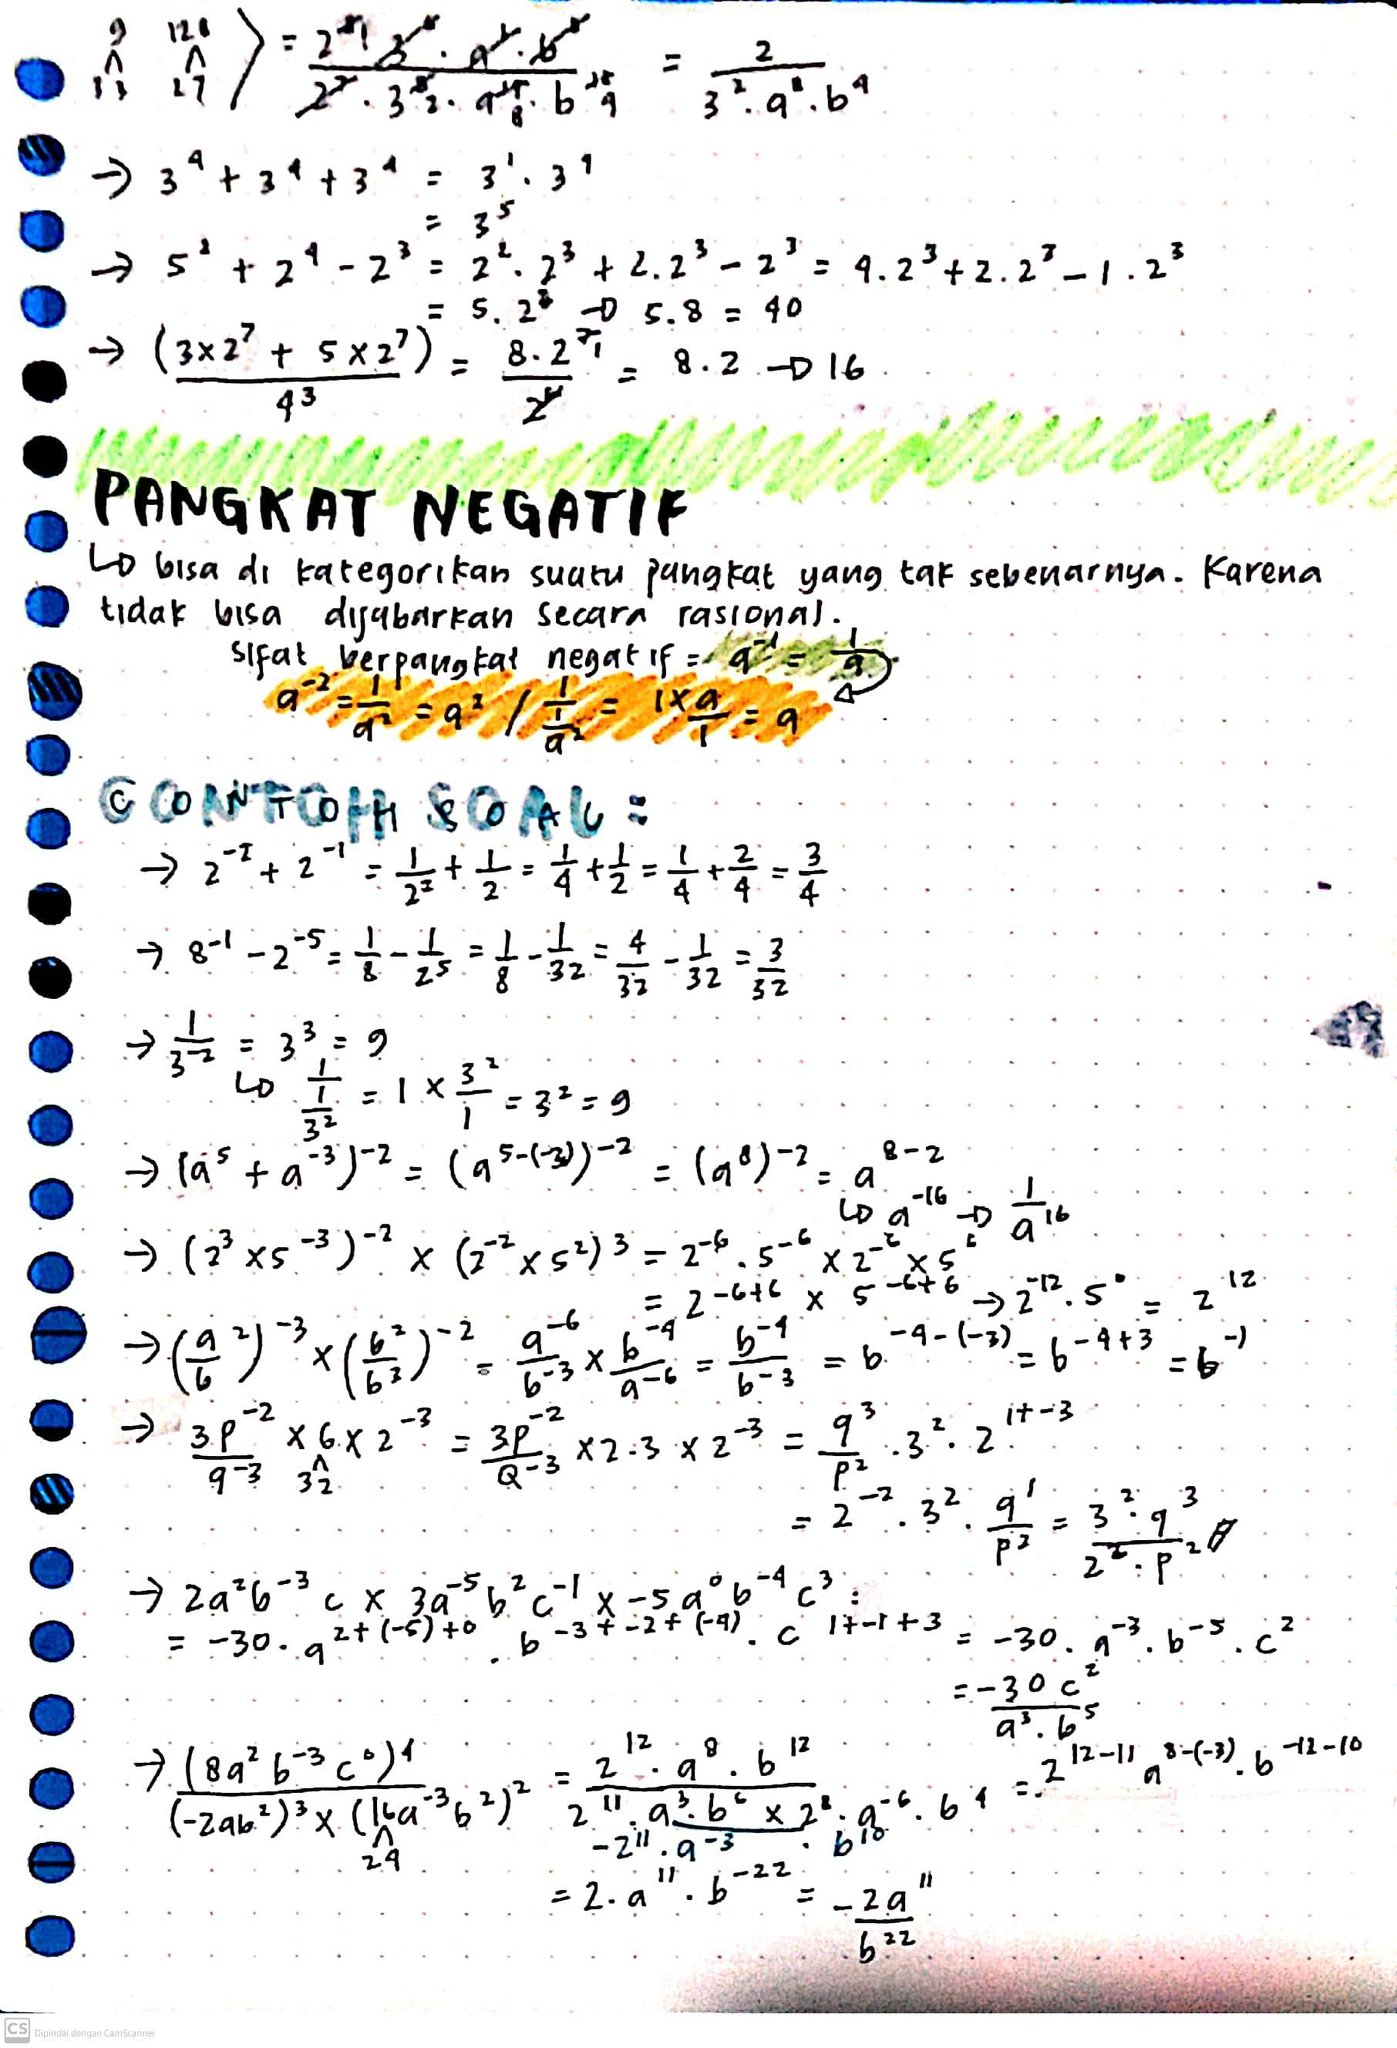 9 128 = 2^8 1 3^6 . a^7 . b^6 / 2^7 . 3^8 2 . a^15 8 . b^15 9 = 2 / 3^2 . a^8 . b^9
33 27
→ 3^4 + 3^4 + 3^4 = 3^1 . 3^4
= 3^5
→ 5^2 + 2^4 - 2^3 = 2^2 . 2^3 + 2.2^3 - 2^3 = 4.2^3 + 2.2^3 - 1.2^3
= 5.2^3 → 5.8 = 40
→ (3x2^7 + 5x2^7) / 4^3 = 8.2^7 1 / 2^6 = 8.2 → 16
PANGKAT NEGATIF
↳ bisa di kategorikan suatu pangkat yang tak sebenarnya. Karena
tidak bisa dijabarkan secara rasional.
sifat berpangkat negatif = a^-1 = 1/a
a^-2 = 1/a^2 = a^2 / 1/(1/a^2) = 1 x a / 1 = a
CONTOH SOAL :
→ 2^-2 + 2^-1 = 1/2^2 + 1/2 = 1/4 + 1/2 = 1/4 + 2/4 = 3/4
→ 8^-1 - 2^-5 = 1/8 - 1/2^5 = 1/8 - 1/32 = 4/32 - 1/32 = 3/32
→ 1/3^-2 = 3^3 = 9
↳ 1/(1/3^2) = 1 x 3^2/1 = 3^2 = 9
→ (a^5 + a^-3)^-2 = (a^5-(-3))^-2 = (a^8)^-2 = a^8-2
↳ a^-16 → 1/a^16
→ (2^3 x 5^-3)^-2 x (2^-2 x 5^2)^3 = 2^-6 . 5^-6 x 2^-6 x 5^6
= 2^-6+6 x 5^-6+6 → 2^-12 . 5^0 = 2^12
→ (a^2/b)^-3 x (b^2/b^3)^-2 = a^-6/b^-3 x b^-4/a^-6 = b^-4/b^-3 = b^-4-(-3) = b^-4+3 = b^-1
→ 3p^-2/q^-3 x 6 x 2^-3 = 3p^-2/Q^-3 x 2.3 x 2^-3 = q^3/p^2 . 3^2 . 2^1+-3
32
= 2^-2 . 3^2 . q^1/p^2 = 3^2 . q^3 / 2^2 . p^2
→ 2a^2b^-3 c x 3a^-5 b^2 c^-1 x -5a^0 b^-4 c^3 :
= -30 . a^2+(-5)+0 . b^-3+-2+(-4) . c^1+-1+3 = -30 . a^-3 . b^-5 . c^2
= -30 c^2 / a^3 . b^5
→ (8a^2 b^-3 c^0)^4 / (-2ab^2)^3 x (16a^-3 b^2)^2 = 2^12 . a^8 . b^12 / 2^11 . a^3 . b^6 x 2^8 . a^-6 . b^4 = 2^12-11 a^8-(-3) . b^-12-10
24
-2^11 . a^-3 . b^10
= 2 . a^11 . b^-22 = -2a^11 / b^22
CS Dipindai dengan CamScanner